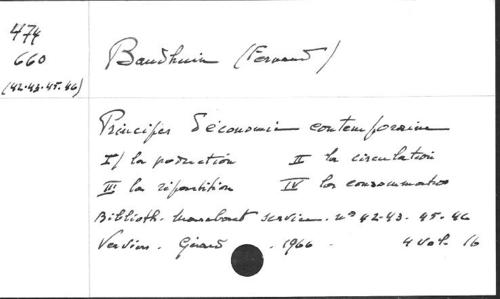 474
660
(42.43.45.46)
Baudhuin (Fernand)
Principes d'économie contemporaine
I/ la production II la circulation
III la répartition IV la consommation
Biblioth. Marabout service. n° 42-43. 45.46
Verviers. Gérard . 1966 4 vol. 16